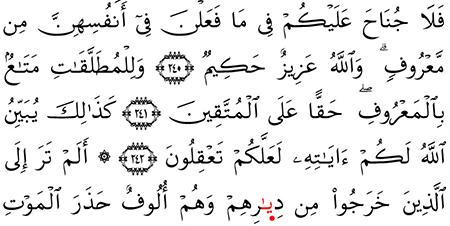 فَلَا جُنَاحَ عَلَيْكُمْ فِى مَا فَعَلْنَ فِىٓ أَنفُسِهِنَّ مِن
مَّعْرُوفٍ ۗ وَٱللَّهُ عَزِيزٌ حَكِيمٌ ﴿٢٤٠﴾ وَلِلْمُطَلَّقَـٰتِ مَتَـٰعٌۢ
بِٱلْمَعْرُوفِ ۖ حَقًّا عَلَى ٱلْمُتَّقِينَ ﴿٢٤١﴾ كَذَٰلِكَ يُبَيِّنُ
ٱللَّهُ لَكُمْ ءَايَـٰتِهِۦ لَعَلَّكُمْ تَعْقِلُونَ ﴿٢٤٢﴾ ۞ أَلَمْ تَرَ إِلَى
ٱلَّذِينَ خَرَجُوا۟ مِن دِيَـٰرِهِمْ وَهُمْ أُلُوفٌ حَذَرَ ٱلْمَوْتِ